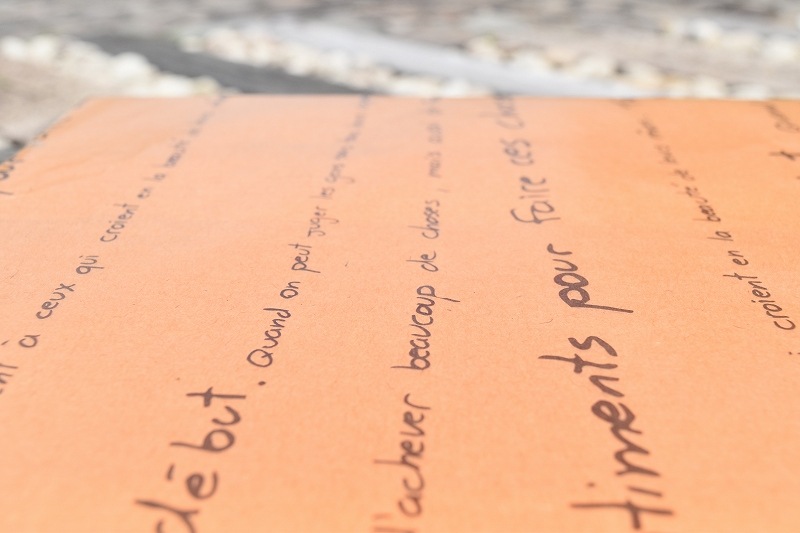 à ceux qui croient en la beauté
début. Quand on peut juger les gens
d'achever beaucoup de choses, mais
timents pour faire ces
croient en la beauté de